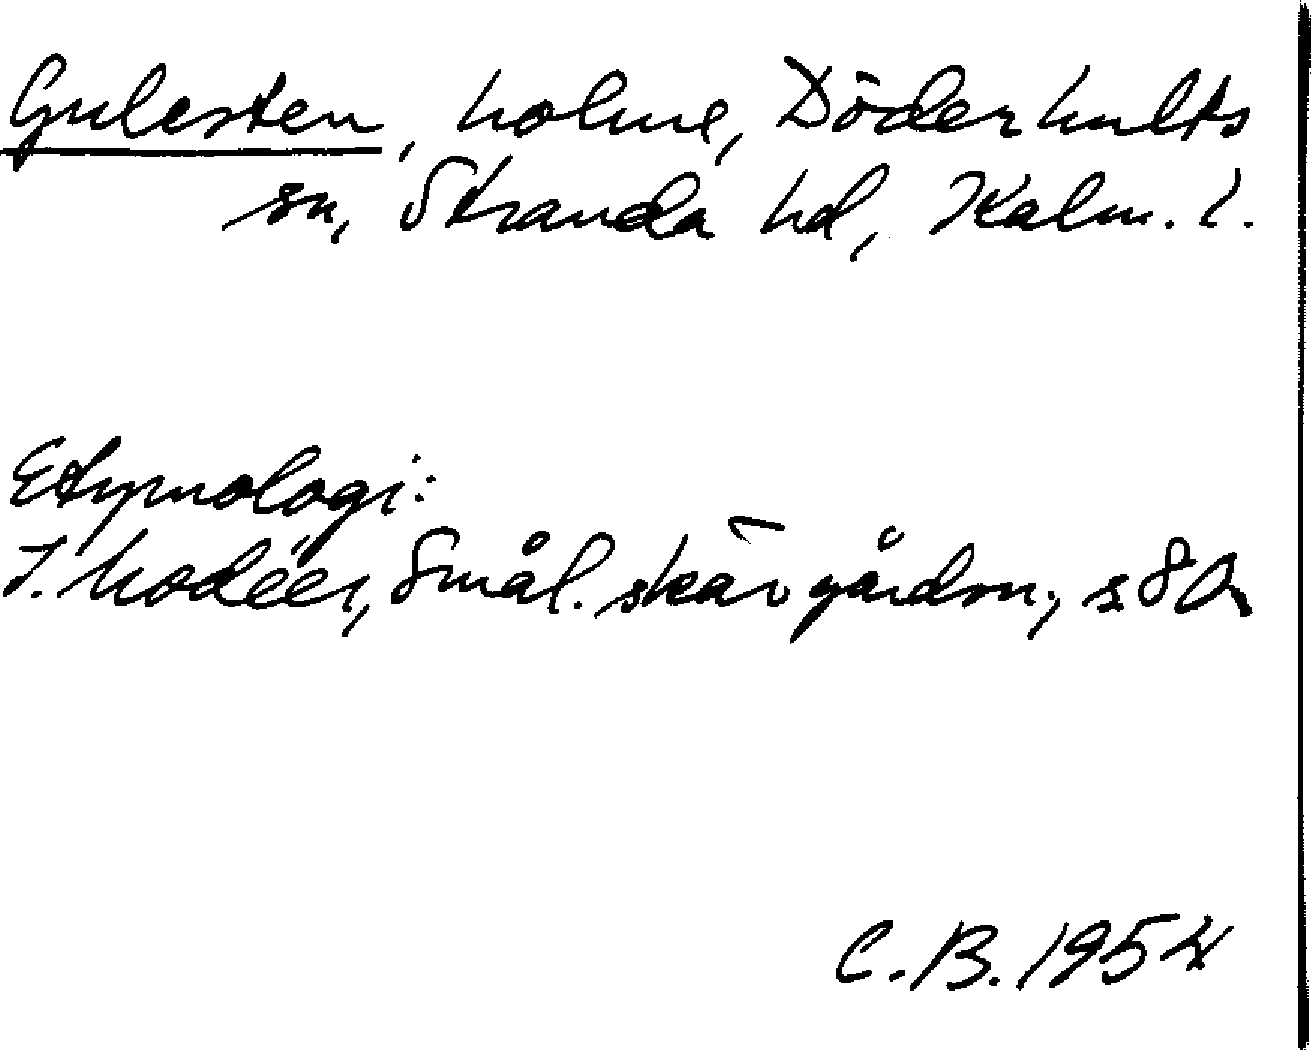 Gulesten, holme, Döderhults
sn, Stranda hd, Kalm. l.
Etymologi:
I. Modéer, Smål. skärgårdsn,
C.B. 1954